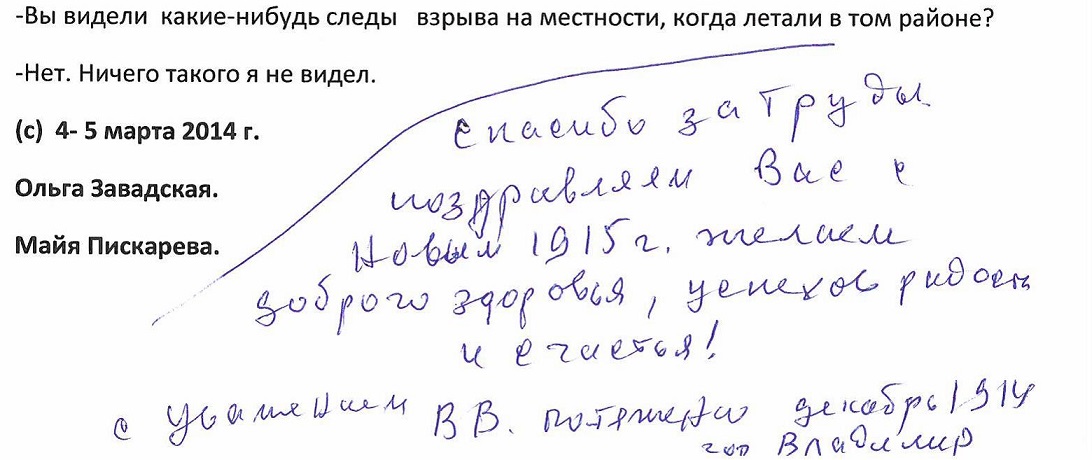 -Вы видели какие-нибудь следы взрыва на местности, когда летали в том районе?
-Нет. Ничего такого я не видел.
(с) 4- 5 марта 2014 г.
Ольга Завадская.
Майя Пискарева.
Спасибо за труды
поздравляем Вас с
Новым 1915 г. желаем
доброго здоровья, успехов радость
и счастья!
с уважением В В. Потяженко декабрь 1914
гор Владимир